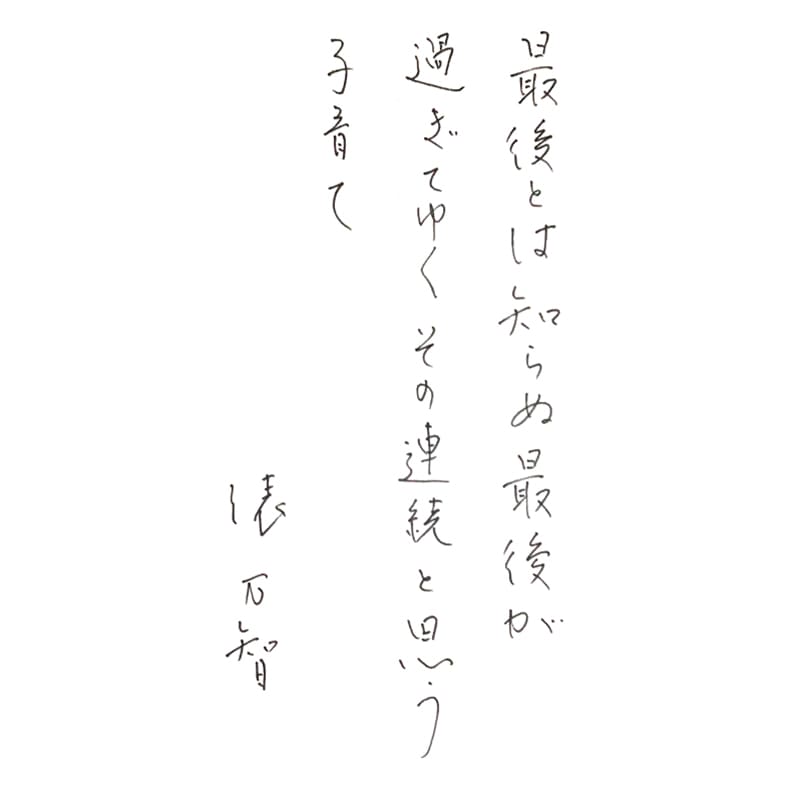 最後とは知らぬ最後が
過ぎてゆくその連続と思う
子育て
俵万智